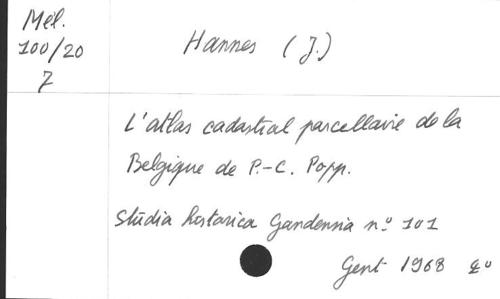 Mél.
100/20
7
Hannes (J.)
L'atlas cadastral parcellaire de la
Belgique de P.-C. Popp.
Studia historica Gandensia n.º 101
Gent 1968 8º